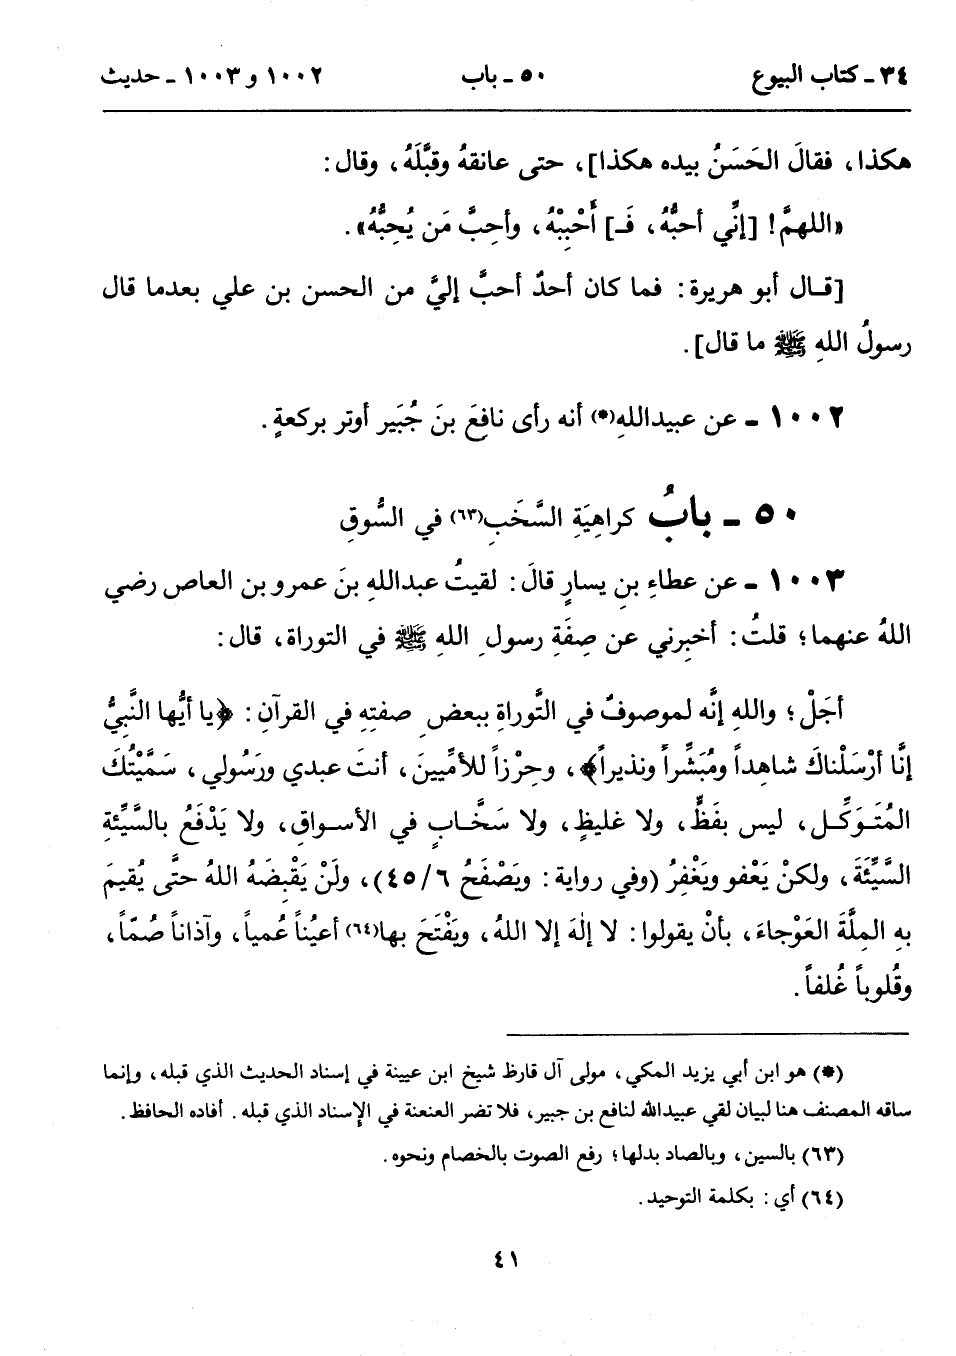 ٣٤ ـ كتاب البيوع ٥٠ ـ باب ١٠٠٢ و ١٠٠٣ ـ حديث
هكذا، فقالَ الحَسَنُ بيده هكذا]، حتى عانقهُ وقبَّلَهُ، وقال:
«اللهمَّ! [إنِّي أحبُّهُ، فَـ] أَحْبِبْهُ، وأحِبَّ مَن يُحِبُّهُ».
[قـال أبو هريرة: فما كان أحدٌ أحبَّ إليَّ من الحسن بن علي بعدما قال
رسولُ اللهِ ﷺ ما قال].
١٠٠٢ ـ عن عبيداللهِ(*) أنه رأى نافِعَ بنَ جُبَير أوتر بركعةٍ.
٥٠ ـ بابُ كراهِيَةِ السَّخَبِ(٦٣) في السُّوقِ
١٠٠٣ ـ عن عطاءِ بنِ يسارٍ قالَ: لقيتُ عبداللهِ بنَ عمرو بن العاص رضي
اللهُ عنهما؛ قلتُ: أخبِرني عن صِفَةِ رسولِ اللهِ ﷺ في التوراة، قال:
أجَلْ؛ واللهِ إنَّه لموصوفٌ في التَّوراةِ ببعضِ صفتِهِ في القرآنِ: ﴿يا أيُّها النَّبِيُّ
إنَّا أرْسَلْناكَ شاهِداً ومُبَشِّراً ونذيراً﴾، وحِرْزاً للأمِّيينَ، أنتَ عبدي ورَسُولي، سَمَّيْتُكَ
المُتَـوَكِّـل، ليس بفَظٍّ، ولا غليظٍ، ولا سَخَّـابٍ في الأسـواقِ، ولا يَدْفَعُ بالسَّيِّئةِ
السَّيِّئَةَ، ولكنْ يَعْفو ويَغْفِرُ (وفي رواية: ويَصْفَحُ ٤٥/٦)، ولَنْ يَقْبِضَهُ اللهُ حتَّى يُقيمَ
بهِ المِلَّةَ العَوْجاءَ، بأنْ يقولوا: لا إلٰهَ إلا اللهُ، ويَفْتَحَ بها(٦٤) أعيُناً عُمياً، وآذاناً صُمّاً،
وقُلوباً غُلفاً.
(*) هو ابن أبي يزيد المكي، مولى آل قارظ شيخ ابن عيينة في إسناد الحديث الذي قبله، وإنما
ساقه المصنف هنا لبيان لقي عبيدالله لنافع بن جبير، فلا تضر العنعنة في الإسناد الذي قبله. أفاده الحافظ.
(٦٣) بالسين، وبالصاد بدلها؛ رفع الصوت بالخصام ونحوه.
(٦٤) أي: بكلمة التوحيد.
٤١